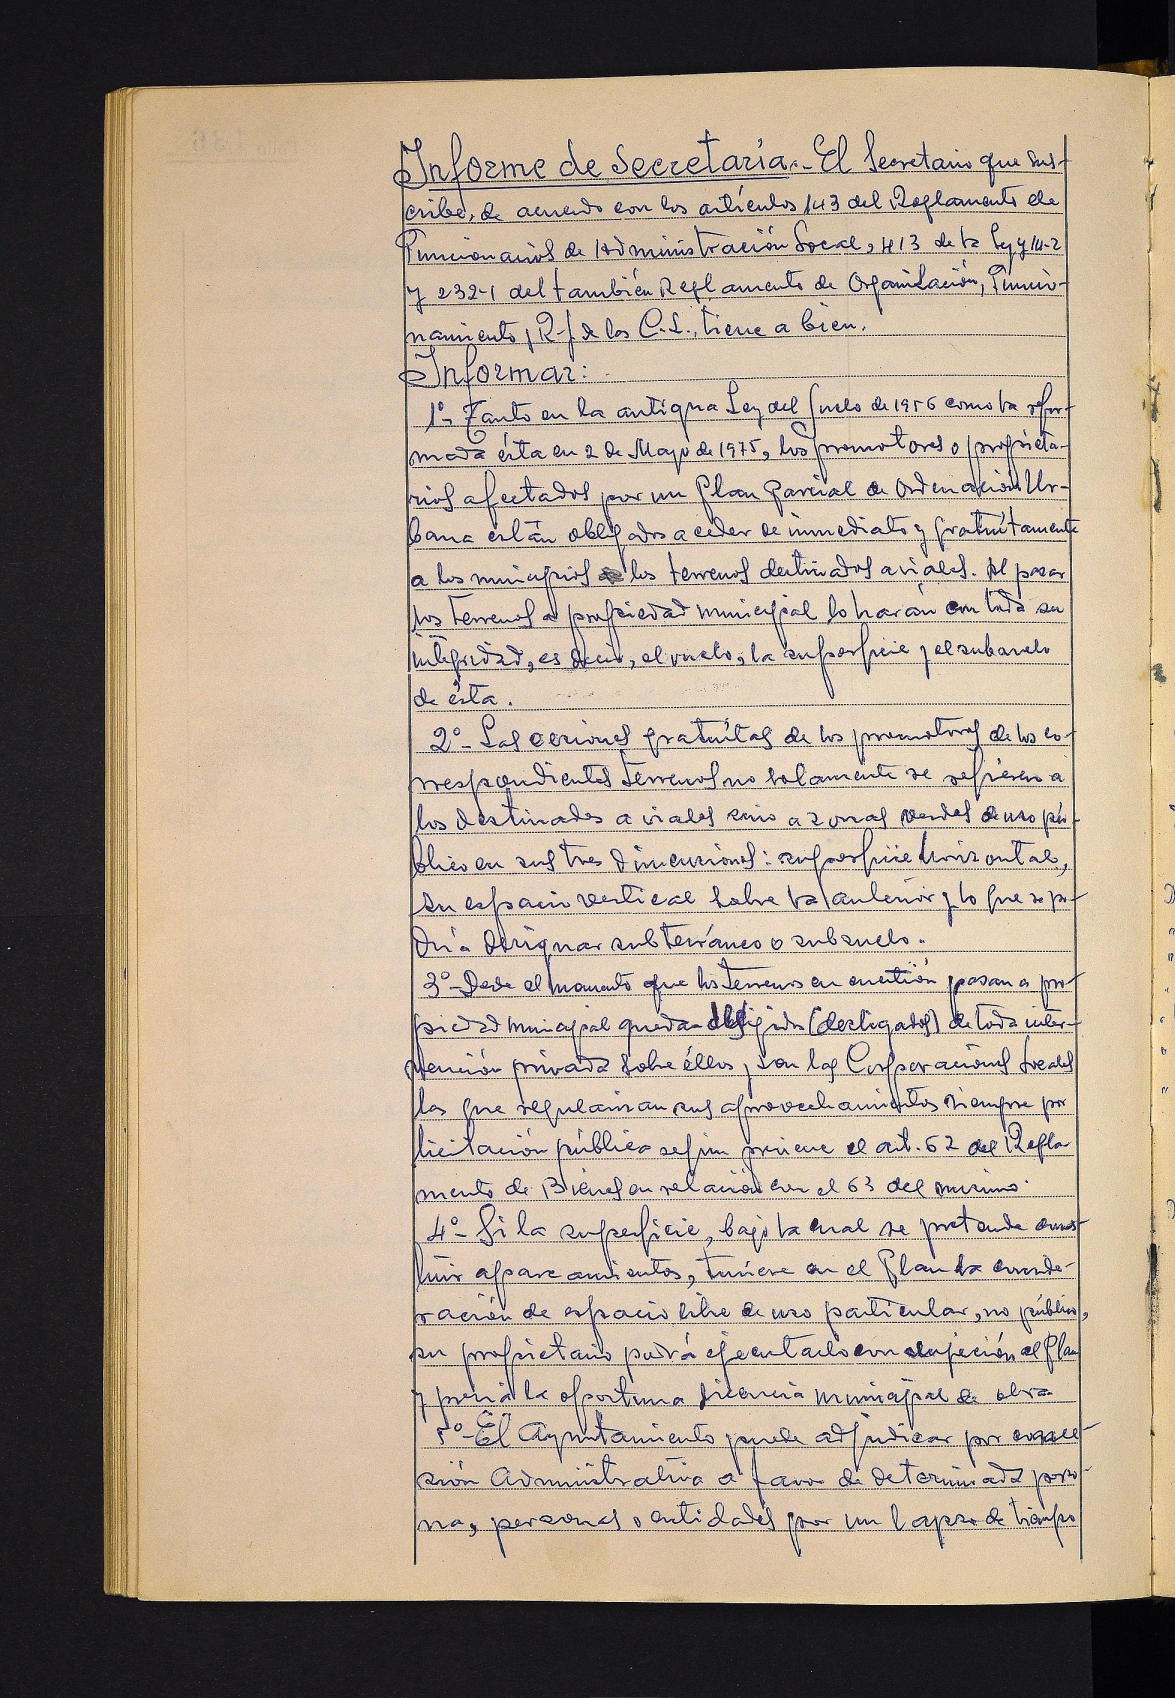 Informe de Secretaría.- El Secretario que sus-
cribe, de acuerdo con los artículos 143 del Reglamento de
Funcionarios de Administración Local, 413 de la Ley y 141-2
y 232-1 del también Reglamento de Organización, Funcio-
namiento y R-J de las C.L., tiene a bien.
Informar:
1º- Tanto en la antigua Ley del Suelo de 1956 como la refor-
mada ésta en 2 de Mayo de 1975, los promotores o propieta-
rios afectados por un Plan Parcial de Ordenación Ur-
bana están obligados a ceder de inmediato y gratuítamente
a los municipios los terrenos destinados a viales. Al pasar
los terrenos a propiedad municipal lo harán con toda su
integridad, es decir, el vuelo, la superficie y el subsuelo
de ésta.
2º- Las cesiones gratuítas de los promotores de los co-
rrespondientes terrenos no solamente se refieren a
los destinados a viales sino a zonas verdes de uso pú-
blico en sus tres dimensiones: superficie horizontal,
su espacio vertical sobre la anterior y lo que se po-
dría designar subterráneo o subsuelo.
3º- Desde el momento que los terrenos en cuestión pasan a pro-
piedad municipal quedan (desligados) de toda inter-
vención privada sobre éllos, y son las Corporaciones Locales
las que regularizan sus aprovechamientos siempre por
licitación pública según previene el art. 62 del Regla-
mento de Bienes en relación con el 63 del mismo.
4º- Si la superficie, bajo la cual se pretende cons-
truir aparcamientos, tuviere en el Plan la conside-
ración de espacio libre de uso particular, no público,
su propietario podrá ejecutarlo con sujeción al Plan
y previa la oportuna licencia municipal de obra
5º- El Ayuntamiento puede adjudicar por conce-
sión Administrativa a favor de determinada perso-
na, personas o entidades por un lapso de tiempo